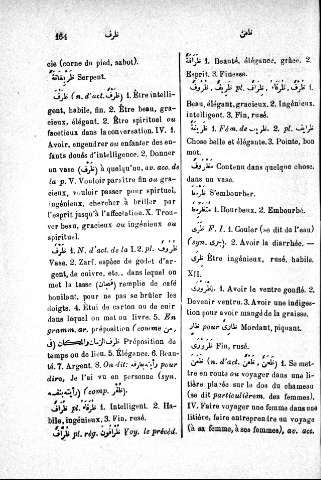 164
ظرف
ظعن
cie (corne du pied, sabot).
Serpent.
ظَرُفَ (n. d'act. ) 1. Être intelli-
gent, habile, fin. 2. Être beau, gra-
cieux, élégant. 2. Être spirituel ou
facétieux dans la conversation. IV. 1.
Avoir, engendrer ou enfanter des en-
fants doués d'intelligence. 2. Donner
un vase (ظَرْف) à quelqu'un, av. acc. de
la p. V. Vouloir paraître fin ou gra-
cieux, vouloir passer pour spirituel,
ingénieux, chercher à briller par
l'esprit jusqu'à l'affectation. X. Trou-
ver beau, gracieux ou ingénieux ou
spirituel.
ظَرْف 1. N. d'act. de la I. 2. pl. ظُرُوف
Vase. 2. Zarf, espèce de godet d'ar-
gent, de cuivre, etc., dans lequel on
met la tasse (فنجان) remplie de café
bouillant, pour ne pas se brûler les
doigts. 4. Étui de carton ou de cuir
dans lequel on met ou livre. 5. En
gramm. ar. préposition (comme من,
Préposition de
temps ou de lieu. 5. Élégance. 6. Beau-
té. 7. Argent. 8. On dit: pour
dire, Je l'ai vu en personne (syn.
) (comp. ).
pl. 1. Intelligent. 2. Ha-
bile, ingénieux, 3. Fin, rusé.
pl. rég. Voy. le précéd.
ظَرَافَة 1. Beauté, élégance, grâce. 2.
Esprit. 3. Finesse.
ظَرِيف pl. 1.
Beau, élégant, gracieux. 2. Ingénieux,
intelligent. 3. Fin, rusé.
1. Fém. de ظريف. 2. pl.
Chose belle et élégante. 3. Pointe, bon
mot.
مَظْرُوف Contenu dans quelque chose,
dans un vase.
S'embourber.
1. Bourbeux. 2. Embourbé.
F. I. 1. Couler (se dit de l'eau)
(syn. جرى). 2. Avoir la diarrhée. —
Être ingénieux, rusé, habile.
XII.
1. Avoir le ventre gonflé. 2.
Devenir ventru. 3. Avoir une indiges-
tion pour avoir mangé de la graisse.
pour Mordant, piquant.
Fin, rusé.
ظَعَنَ (n. d'act. ) 1. Se met-
tre en route ou voyager dans une li-
tière placée sur le dos du chameau
(se dit particulièrem. des femmes).
IV. Faire voyager une femme dans une
litière, faire entreprendre un voyage
(à sa femme, à ses femmes), av. acc.